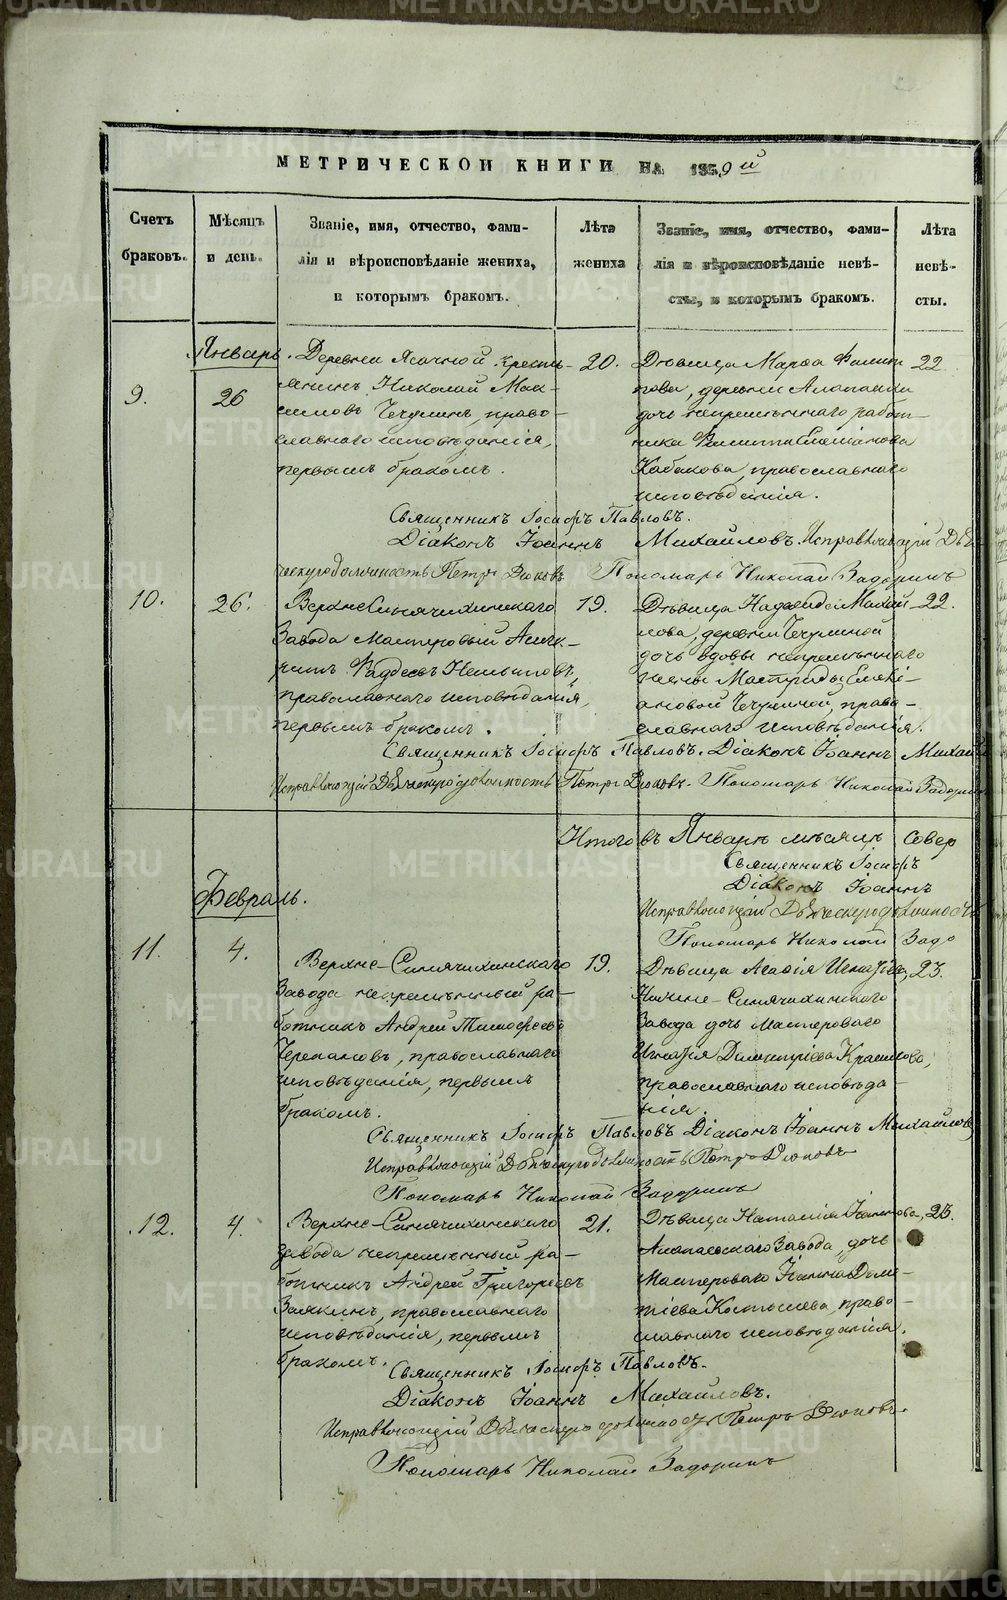 МЕТРИЧЕСКОЙ КНИГИ НА 1859й
Счетъ браковъ.
Мѣсяцъ и день.
Званіе, имя, отчество, фами-
лія и вѣроисповѣданіе жениха,
и которымъ бракомъ.
Лѣта жениха
Званіе, имя, отчество, фами-
лія и вѣроисповѣданіе невѣ-
сты, и которымъ бракомъ.
Лѣта невѣ-
сты.
Январь.
9.
26
Деревни Ясачной кресть-
янинъ Николай Мак-
симовъ Чечулинъ, право-
славнаго исповѣданія,
первымъ бракомъ.
20.
Дѣвица Марѳа Филип
пова, деревни Алапаихи
дочь непремѣннаго работ-
ника Филиппа Емеліанова
Кабакова, православнаго
исповѣданія.
22
Священникъ Іосифъ Павловъ.
Діаконъ Іоаннъ Михайловъ. Исправляющій Дья
ческую должность Петръ Пономарь Николай Задоринъ
10.
26.
Верхне Синячихинскаго
Завода мастеровый
православнаго исповѣданія,
первымъ бракомъ.
19.
Дѣвица Надежда Михай-
лова, деревни Чечулиной
дочь вдовы непремѣннаго
Емелі-
ановой Чечулиной, право-
славнаго исповѣданія.
22.
Священникъ Іосифъ Павловъ. Діаконъ Іоаннъ Михайл
Исправляющій Дьяческую должность Петръ Пономарь Николай Задорин
Итого въ Январѣ мѣсяцѣ совер
Священникъ Іосифъ
Діаконъ Іоаннъ
Исправляющій Дьяческую должность
Пономарь Николай Задо
Февраль.
11.
4.
Верхне-Синячихинскаго
Завода непремѣнный ра-
ботникъ Андрей Тимофеевъ
Черепановъ, православнаго
исповѣданія, первымъ
бракомъ.
19.
Дѣвица Агафія Игнатіева,
Нижне-Синячихинскаго
Завода дочь мастероваго
Игнатія Димитріева
православнаго исповѣда-
нія.
23.
Священникъ Іосифъ Павловъ Діаконъ Іоаннъ Михайловъ
Исправляющій Дьяческую должность Петръ
Пономарь Николай Задоринъ
12.
4.
Верхне-Синячихинскаго
завода непремѣнный ра-
ботникъ Андрей Григорьевъ
Заякинъ, православнаго
исповѣданія, первымъ
бракомъ.
21.
Дѣвица Наталія
Алапаевскаго Завода, дочь
мастероваго
Костышева, право-
славнаго исповѣданія.
25.
Священникъ Іосифъ Павловъ.
Діаконъ Іоаннъ Михайловъ.
Исправляющій Дьяческую должность Петръ
Пономарь Николай Задоринъ
METRIKI.GASO-URAL.RU